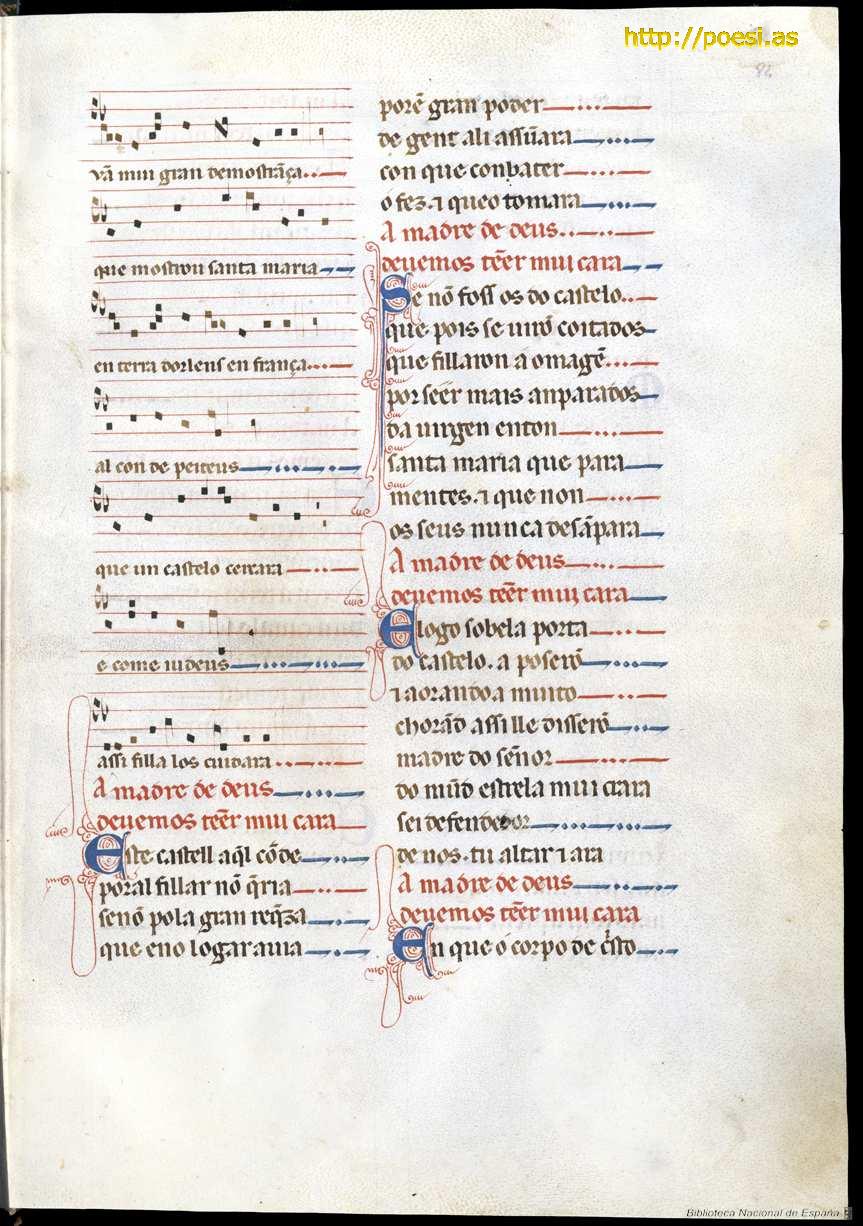 http://poesi.as
vã mui gran demostrãça
que mostrou santa maria
en terra dorlens en frança
al con de peiteus
que un castelo cercara
e come iudeus
assi filla los cuidara
A madre de deus
deuemos tẽer mui cara
Este castell aq̃l cõde
poral fillar nõ q̃ria
senõ pola gran req̃za
que eno logar auia
porẽ gran poder
de gent ali assũara
con que conbater
o fez. ⁊ queo tomara
A madre de deus
deuemos tẽer mui cara
Se nõ foss os do castelo
que pois se uirõ coitados
que fillaron a omagẽ
por seer mais anparados
da uirgen enton
santa maria que para
mentes. ⁊ que non
os seus nunca desãpara
A madre de deus
deuemos tẽer mui cara
E logo sobela porta
do castelo. a poserõ
⁊ aorandoa muito
chorãd assi lle disserõ
madre do sẽnor
do mũd estrela mui crara
sei defendedor
de nos. tu altar ⁊ ara
A madre de deus
deuemos tẽer mui cara
En que o corpo de c̃sto
Biblioteca Nacional de España